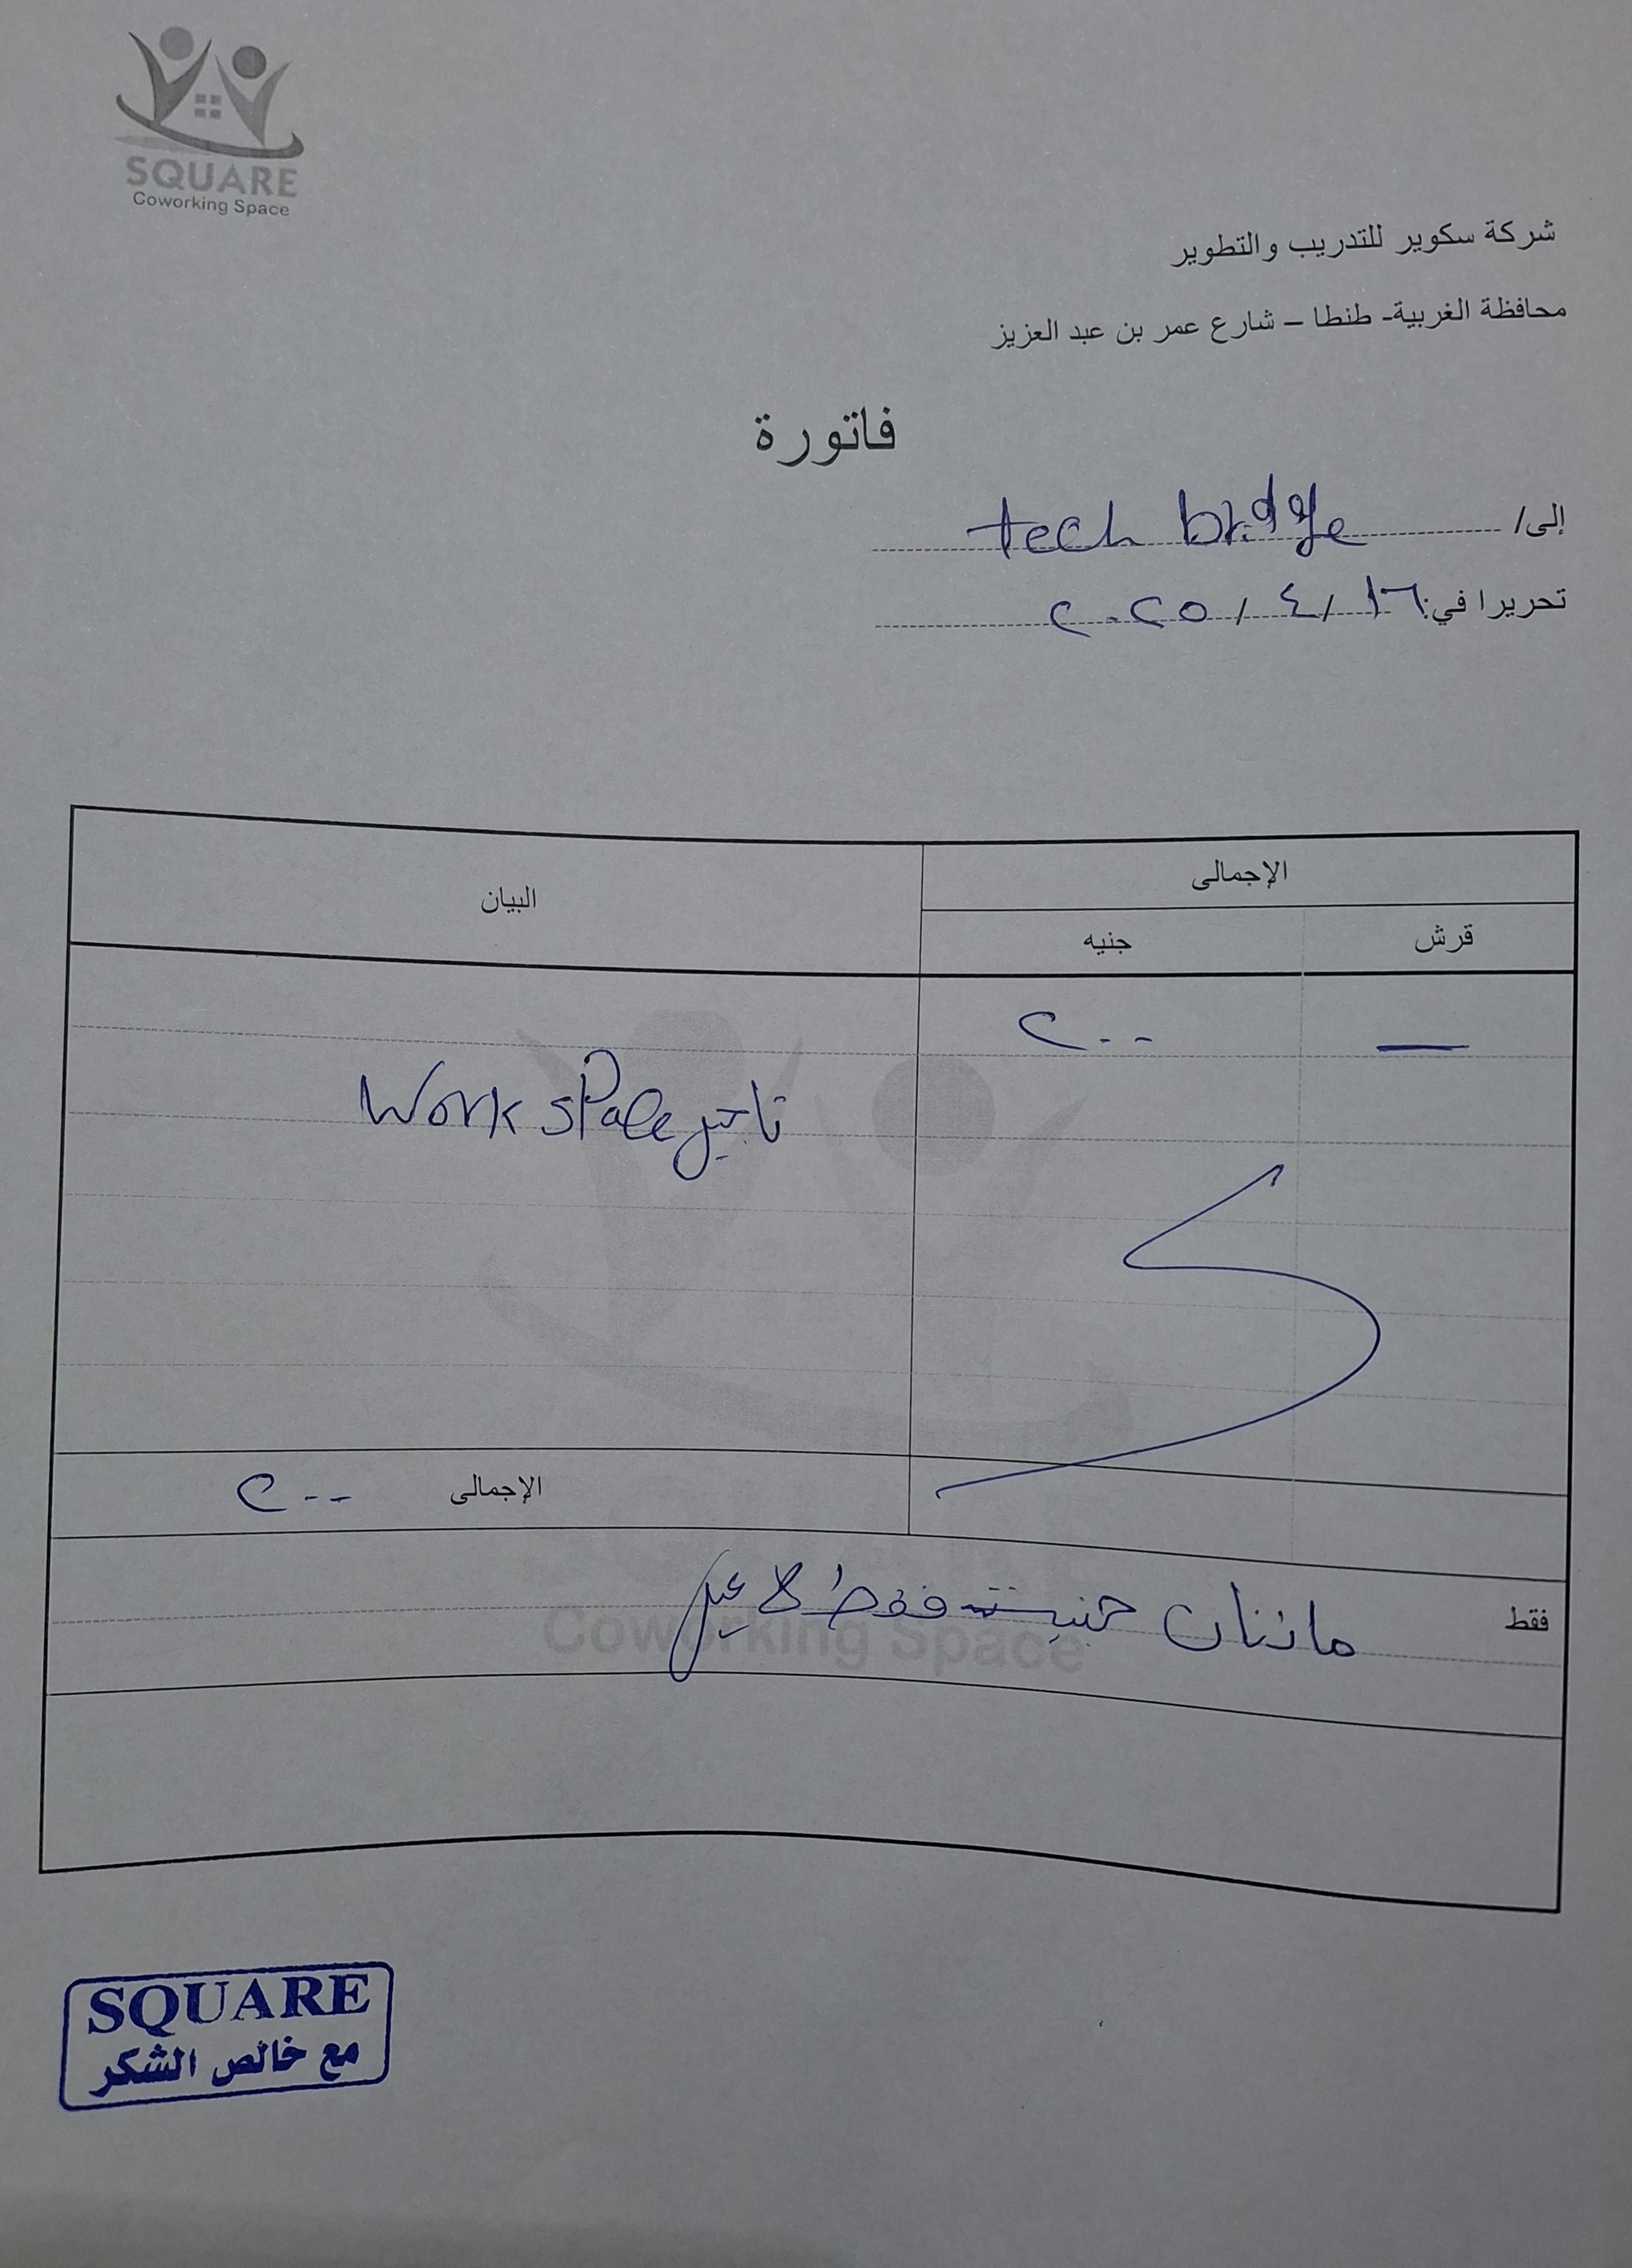 SQUARE
Coworking Space
شركة سكوير للتدريب والتطوير
محافظة الغربية- طنطا – شارع عمر بن عبد العزيز
فاتورة
إلى/ tech bridge
تحريرا في: ١٦ / ٤ / ٢٠٢٥
الإجمالى
البيان
قرش جنيه
— ٢٠٠
تاجير Work space
الإجمالى ٢٠٠
فقط مائتان جنيه فقط لا غير
Coworking Space
SQUARE
مع خالص الشكر